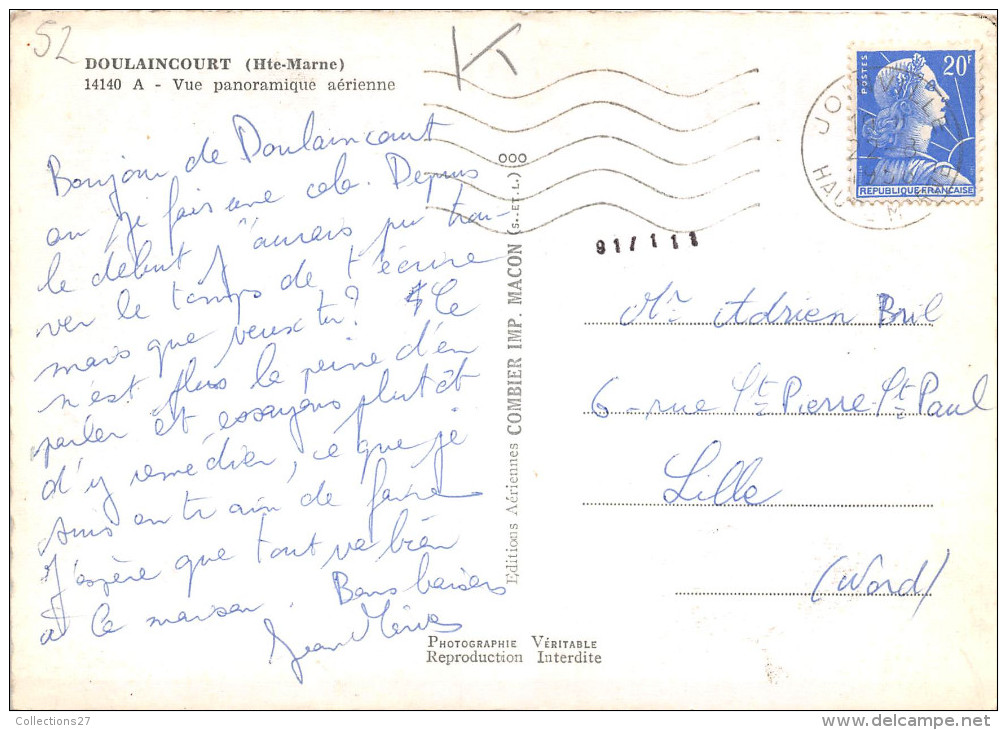 52
K
DOULAINCOURT (Hte-Marne)
14140 A - Vue panoramique aérienne
Bonjour de Doulaincourt
où je fais une colo. Depuis
le début j'aurais pu trou-
ver le temps de t'écrire
mais que veux tu? Ce
n'est plus la peine d'en
parler et essayons plutôt
d'y remédier, ce que je
suis en train de faire
J'espère que tout va bien
à la maison. Bons baisers
Jean
Editions Aériennes COMBIER IMP. MACON (S.-ET-L.)
000
POSTES
20F
REPUBLIQUE FRANÇAISE
91/111
Mr Adrien Bril
6 - rue St Pierre-St Paul
Lille
(Nord)
PHOTOGRAPHIE VÉRITABLE
Reproduction Interdite
Collections27
www.delcampe.net